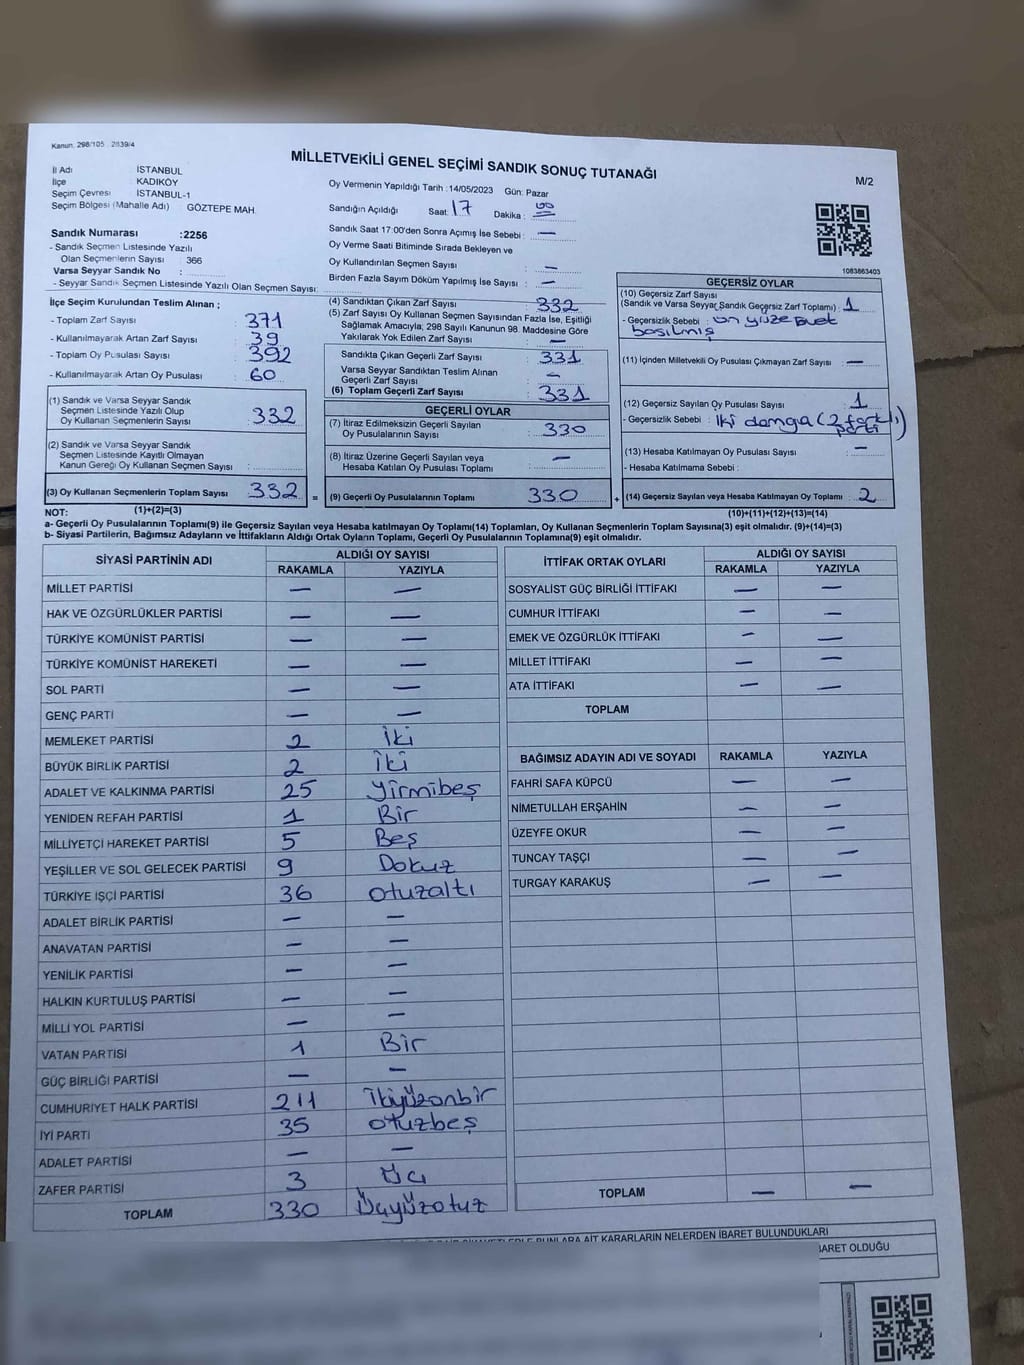 Kanun. 298/105 . 2839/4
MİLLETVEKİLİ GENEL SEÇİMİ SANDIK SONUÇ TUTANAĞI
M/2
İl Adı İSTANBUL
İlçe KADIKÖY
Seçim Çevresi İSTANBUL-1
Seçim Bölgesi (Mahalle Adı) GÖZTEPE MAH.
Oy Vermenin Yapıldığı Tarih :14/05/2023 Gün: Pazar
Sandığın Açıldığı Saat: 17 Dakika : 00
Sandık Saat 17:00'den Sonra Açımış İse Sebebi : —
Oy Verme Saati Bitiminde Sırada Bekleyen ve
Oy Kullandırılan Seçmen Sayısı : —
Birden Fazla Sayım Döküm Yapılmış İse Sayısı : —
1083863403
Sandık Numarası :2256
- Sandık Seçmen Listesinde Yazılı
Olan Seçmenlerin Sayısı : 366
Varsa Seyyar Sandık No :
- Seyyar Sandık Seçmen Listesinde Yazılı Olan Seçmen Sayısı:
İlçe Seçim Kurulundan Teslim Alınan ;
- Toplam Zarf Sayısı : 371
- Kullanılmayarak Artan Zarf Sayısı : 39
- Toplam Oy Pusulası Sayısı : 392
- Kullanılmayarak Artan Oy Pusulası : 60
(1) Sandık ve Varsa Seyyar Sandık
Seçmen Listesinde Yazılı Olup
Oy Kullanan Seçmenlerin Sayısı : 332
(2) Sandık ve Varsa Seyyar Sandık
Seçmen Listesinde Kayıtlı Olmayan
Kanun Gereği Oy Kullanan Seçmen Sayısı :
(3) Oy Kullanan Seçmenlerin Toplam Sayısı : 332 =
(1)+(2)=(3)
(4) Sandıktan Çıkan Zarf Sayısı : 332
(5) Zarf Sayısı Oy Kullanan Seçmen Sayısından Fazla İse, Eşitliği
Sağlamak Amacıyla; 298 Sayılı Kanunun 98. Maddesine Göre
Yakılarak Yok Edilen Zarf Sayısı : —
Sandıkta Çıkan Geçerli Zarf Sayısı : 331
Varsa Seyyar Sandıktan Teslim Alınan
Geçerli Zarf Sayısı : —
(6) Toplam Geçerli Zarf Sayısı : 331
GEÇERLİ OYLAR
(7) İtiraz Edilmeksizin Geçerli Sayılan
Oy Pusulalarının Sayısı : 330
(8) İtiraz Üzerine Geçerli Sayılan veya
Hesaba Katılan Oy Pusulası Toplamı : —
(9) Geçerli Oy Pusulalarının Toplamı : 330 +
GEÇERSİZ OYLAR
(10) Geçersiz Zarf Sayısı
(Sandık ve Varsa Seyyar Sandık Geçersiz Zarf Toplamı) : 1
- Geçersizlik Sebebi : ön yüze evet
basılmış
(11) İçinden Milletvekili Oy Pusulası Çıkmayan Zarf Sayısı : —
(12) Geçersiz Sayılan Oy Pusulası Sayısı : 1
- Geçersizlik Sebebi : İki damga (2 farklı
parti)
(13) Hesaba Katılmayan Oy Pusulası Sayısı : —
- Hesaba Katılmama Sebebi :
(14) Geçersiz Sayılan veya Hesaba Katılmayan Oy Toplamı : 2
(10)+(11)+(12)+(13)=(14)
NOT:
a- Geçerli Oy Pusulalarının Toplamı(9) ile Geçersiz Sayılan veya Hesaba katılmayan Oy Toplamı(14) Toplamları, Oy Kullanan Seçmenlerin Toplam Sayısına(3) eşit olmalıdır. (9)+(14)=(3)
b- Siyasi Partilerin, Bağımsız Adayların ve İttifakların Aldığı Ortak Oyların Toplamı, Geçerli Oy Pusulalarının Toplamına(9) eşit olmalıdır.
SİYASİ PARTİNİN ADI ALDIĞI OY SAYISI
RAKAMLA YAZIYLA
MİLLET PARTİSİ — —
HAK VE ÖZGÜRLÜKLER PARTİSİ — —
TÜRKİYE KOMÜNİST PARTİSİ — —
TÜRKİYE KOMÜNİST HAREKETİ — —
SOL PARTİ — —
GENÇ PARTİ — —
MEMLEKET PARTİSİ 2 İki
BÜYÜK BİRLİK PARTİSİ 2 İki
ADALET VE KALKINMA PARTİSİ 25 yirmibeş
YENİDEN REFAH PARTİSİ 1 Bir
MİLLİYETÇİ HAREKET PARTİSİ 5 Beş
YEŞİLLER VE SOL GELECEK PARTİSİ 9 Dokuz
TÜRKİYE İŞÇİ PARTİSİ 36 otuzaltı
ADALET BİRLİK PARTİSİ — —
ANAVATAN PARTİSİ — —
YENİLİK PARTİSİ — —
HALKIN KURTULUŞ PARTİSİ — —
MİLLİ YOL PARTİSİ — —
VATAN PARTİSİ 1 Bir
GÜÇ BİRLİĞİ PARTİSİ — —
CUMHURİYET HALK PARTİSİ 211 İkiyüzonbir
İYİ PARTİ 35 otuzbeş
ADALET PARTİSİ — —
ZAFER PARTİSİ 3 Üç
TOPLAM 330 Üçyüzotuz
İTTİFAK ORTAK OYLARI ALDIĞI OY SAYISI
RAKAMLA YAZIYLA
SOSYALİST GÜÇ BİRLİĞİ İTTİFAKI — —
CUMHUR İTTİFAKI — —
EMEK VE ÖZGÜRLÜK İTTİFAKI — —
MİLLET İTTİFAKI — —
ATA İTTİFAKI — —
TOPLAM
BAĞIMSIZ ADAYIN ADI VE SOYADI RAKAMLA YAZIYLA
FAHRİ SAFA KÜPCÜ — —
NİMETULLAH ERŞAHİN — —
ÜZEYFE OKUR — —
TUNCAY TAŞÇI — —
TURGAY KARAKUŞ — —
TOPLAM — —
BUNLARA AİT KARARLARIN NELERDEN İBARET BULUNDUKLARI
İBARET OLDUĞU